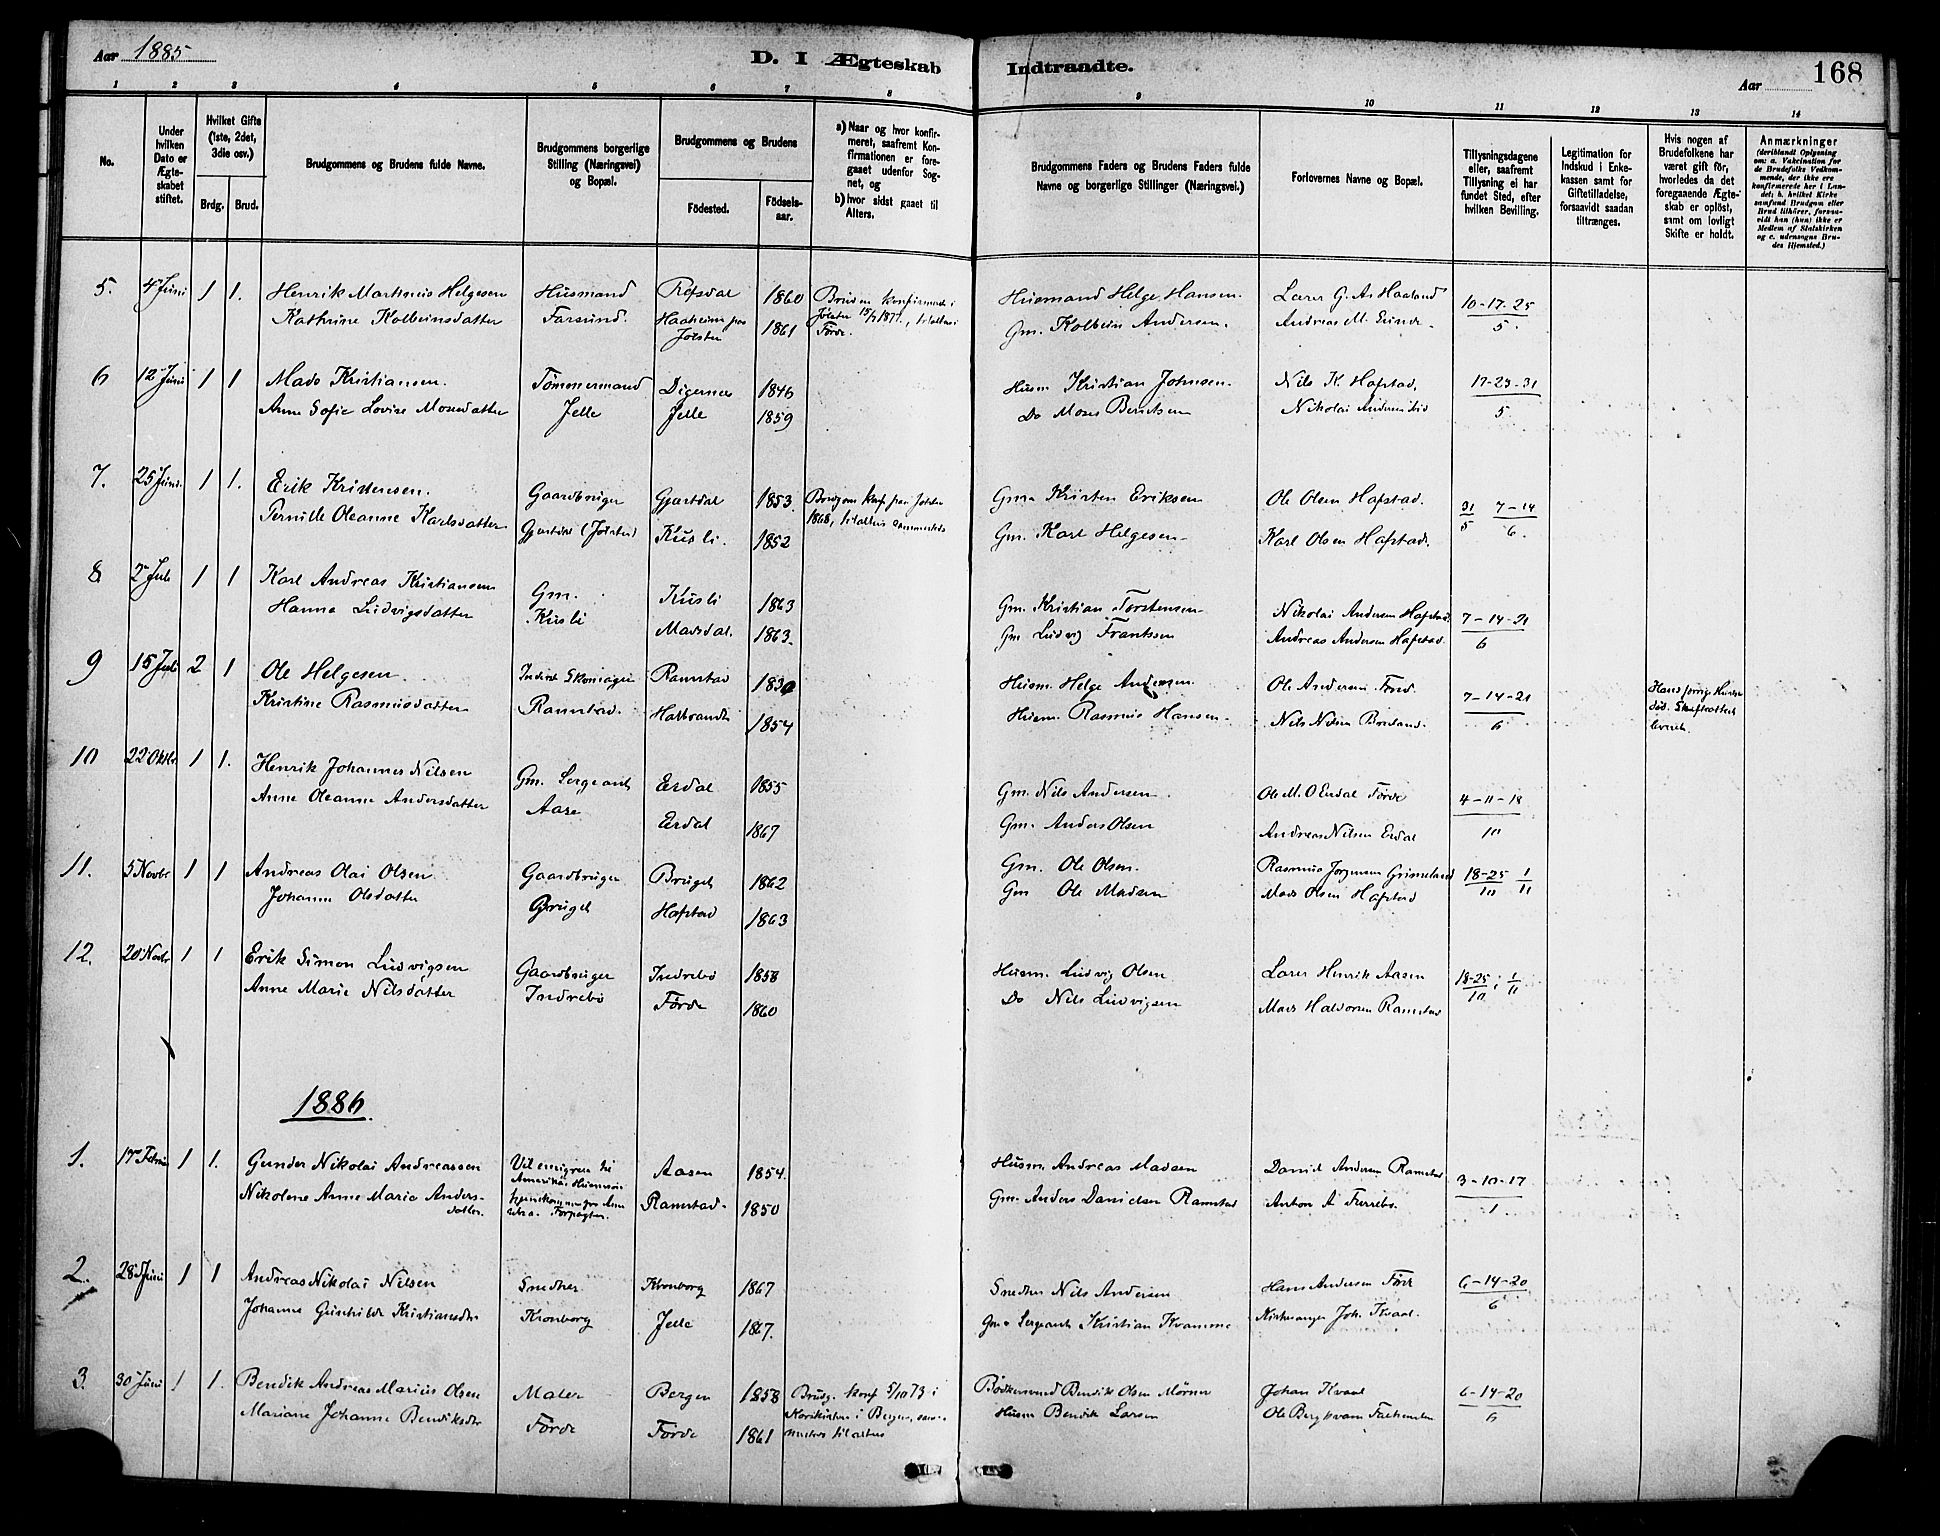 Aar 1885
D. I Ægteskab Indtraadte.
Aar
168
1 2 3 4 5 6 7 8 9 10 11 12 13 14
No.
Under hvilken Dato er Ægteskabet stiftet.
Hvilket Gifte (1ste, 2det, 3die osv.)
Brdg. Brud.
Brudgommens og Brudens fulde Navne.
Brudgommens borgerlige Stilling (Næringsvei) og Bopæl.
Brudgommens og Brudens
Födested.
Födsels-aar.
a) Naar og hvor konfirmeret, saafremt Konfirmationen er foregaaet udenfor Sognet, og
b) hvor sidst gaaet til Alters.
Brudgommens Faders og Brudens Faders fulde Navne og borgerlige Stillinger (Næringsvei.)
Forlovernes Navne og Bopæl.
Tillysningsdagene eller, saafremt Tillysning ei har fundet Sted, efter hvilken Bevilling.
Legitimation for Indskud i Enkekassen samt for Giftetilladelse, forsaavidt saadan tiltrænges.
Hvis nogen af Brudefolkene har været gift för, hvorledes da det foregaaende Ægteskab er oplöst, samt om lovligt Skifte er holdt.
Anmærkninger
(deriblandt Oplysning om: a. Vakcination for de Brudefolks Vedkommende, der ikke ere konfirmerede her i Landet; b. hvilket Kirkesamfund Brudgom eller Brud tilhörer, forsaavidt han (hun) ikke er Medlem af Statskirken og c. udensogns Brudes Hjemsted.)
5. 4 Juni 1 1. Henrik Martinius Helgesen Husmand Refsdal 1860 Bruden konfirmeret i Husmand Helge Hansen. Lærer G. A. Haaland 10-17-25
Kathrine Kolbeinsdatter Farsund. Haaheim Jölster 1861 Förde. Gm. Kolbein Andersen. Andreas M. 5.
6 12 Juni 1 1 Mads Kristiansen. Tömmermand Digernes 1846 Husm Kristian Johnsen. Nils K. Hafstad, 17-23-31
Anne Sofie Lovise Monsdatter Jelle Jelle 1859 Do Mons Berntsen Nikolai Andersen 5.
7. 25 Juni 1 1. Erik Kristensen. Gaardbruger Gjesdal 1853. Brudgom konf. Jölster Gm. Kristen Eriksen Ole Olsen Hafstad. 31/5 7-14
Pernille Oleanne Karlsdatter (Jölster) Kusli. 1852 1868, Gm. Karl Helgesen Karl Olsen Hafstad. 6.
8 2 Juli 1 1 Karl Andreas Kristiansen Gm. Kusli 1863 Gm. Kristian Torstensen Nikolai Andersen Hafstad 7-14-21
Hanna Ludvigsdatter Kusli Madsdal. 1863. Gm Ludvig Frantssen Andreas Andersen Hafstad. 6
9 15 Juli 2 1 Ole Helgesen. Inderst Skomager Ramstad 1830 Husm. Helge Andersen. Ole Andersen Förde. 7-14-21 Hans forrige Hustru
Kristine Rasmusdatter Ramstad. Halbrandli 1854 Husm. Rasmus Hansen Nils Nilsen 6 död.
10 22 Oktbr 1 1. Henrik Johannes Nilsen Gm. Sergeant Erdal 1855 Gm. Nils Andersen. Ole M. O Erdal Förde 4-11-18
Anne Oleanne Andersdatter Aase Erdal 1867 Gm. Anders Olsen Andreas Nilsen Erdal 10
11. 5 Novbr 1 1 Andreas Olai Olsen. Gaardbruger Bruget 1862 Gm. Ole Olsen. Rasmus Jörgensen Grimeland 18-25/10 1/11
Johanne Olsdatter Bruget Hafstad 1863 Gm Ole Madsen Mads Olsen Hafstad
12. 20 Novbr 1 1 Erik Simon Ludvigsen Gaardbruger Indrebö 1858 Husm. Ludvig Olsen Lærer Henrik Aasen 18-25/10 1/11
Anne Marie Nilsdatter Indrebö Förde 1860 Do Nils Ludvigsen Mads Halvorsen Ramstad
1886.
1. 17 Februar 1 1. Gunder Nikolai Andreassen Vil emigrere til Aasen 1854. Husm. Andreas Madsen David Andersen Ramstad 3-10-17
Nikolene Anne Marie Anders- Amerika. Ramstad. 1850 Gm. Anders Danielsen Ramstad Anton A 1
datter. Forpagter.
2. 28 Juni 1 1 Andreas Nikolai Nilsen Snedker Kronborg 1867 Snedker Nils Andersen Hans Andersen Förde 6-14-20
Johanne Gunhilde Kristiansdtr Kronborg Jelle 1867. Gm. Sergeant Kristian Kvamme Kirkesanger Joh. Kvaal 6
3. 30 Juni 1 1. Bendik Andreas Marius Olsen Maler Bergen 1858 Brudg. konf 5/10 73 i Bödkersvend Bendik Olsen Mörner Johan Kvaal 6-14-20
Mariane Johanne Bendiksdtr Förde Förde 1861 Korskirken i Bergen, Husm Bendik Larsen Ole Bergkvam 6
til alters